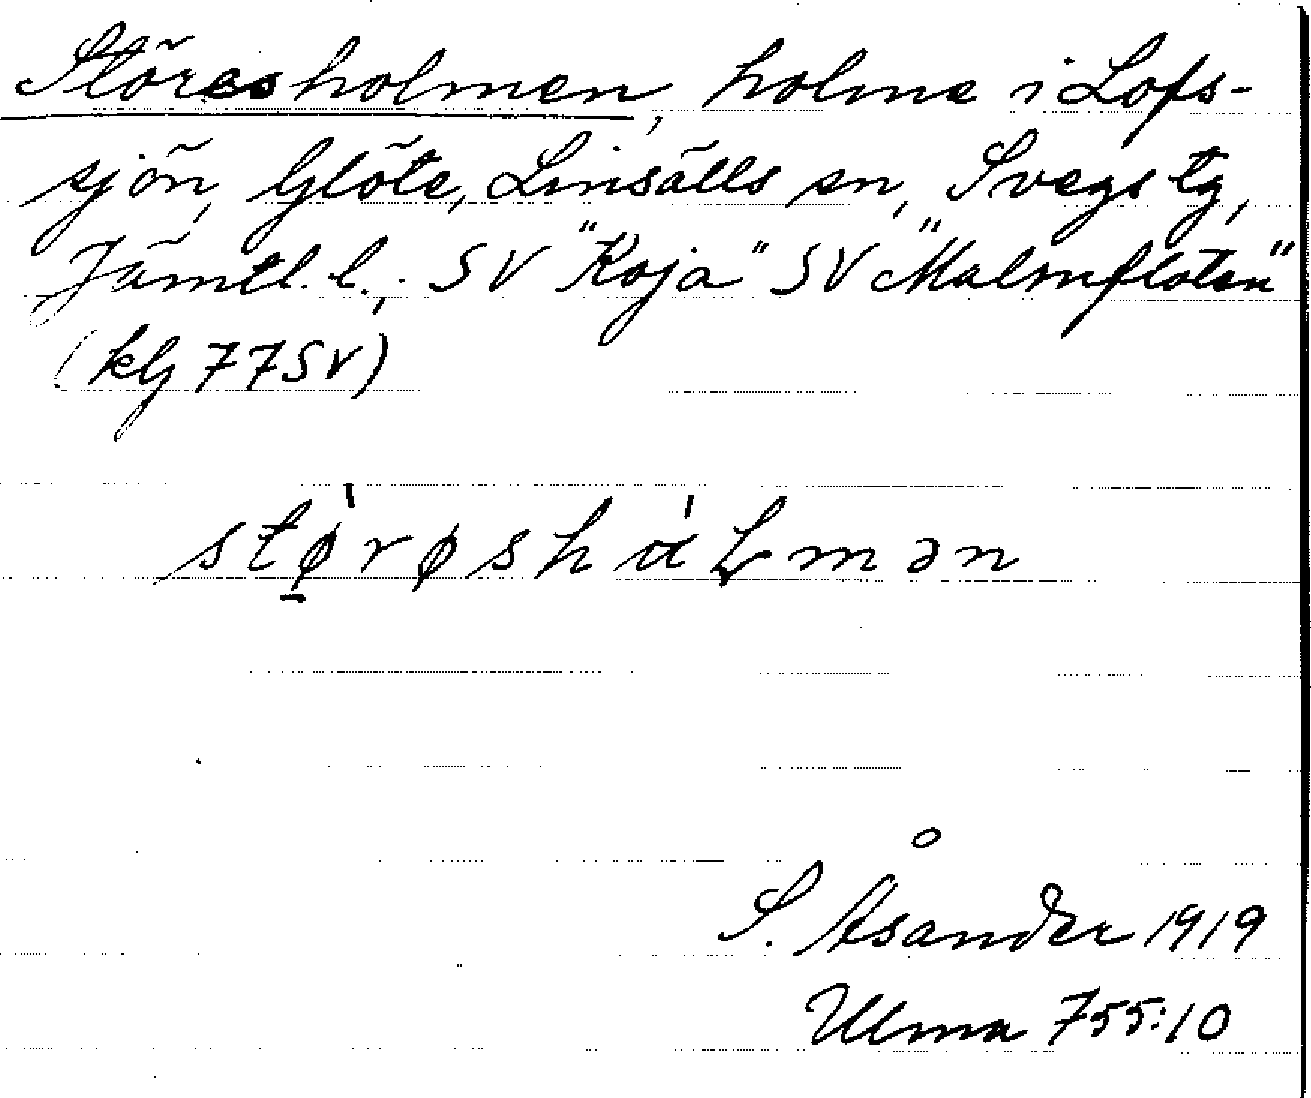 Störesholmen, holme i Lofs-
sjön, Glöte, Linsälls sn, Svegs tg,
Jämtl. l.; SV "Koja" SV "Malmfloten"
(kbj 77SV)
stǿ̱røshάLmən
S. Åsander 1919
Ulma 755:10